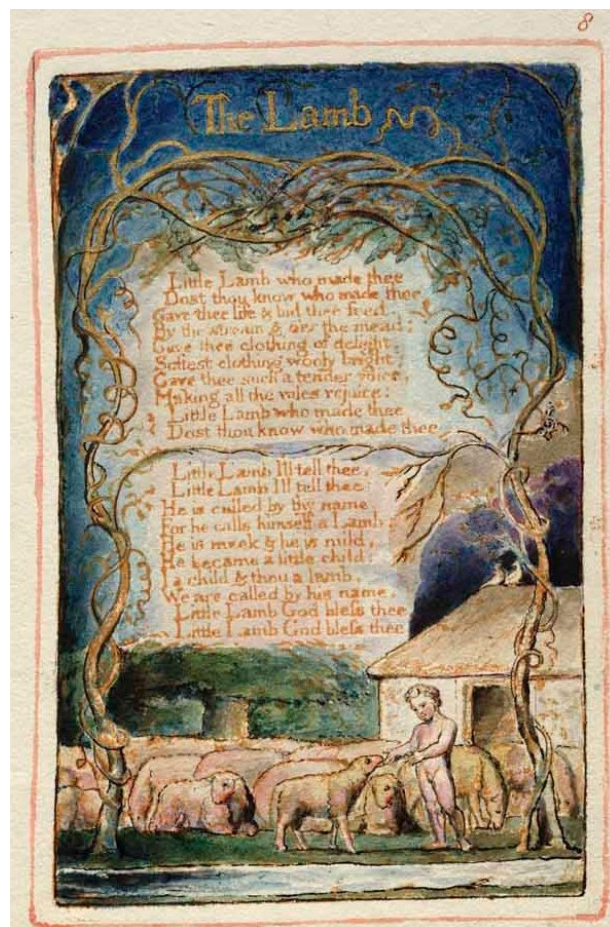 8
The Lamb
Little Lamb who made thee
Dost thou know who made thee
Gave thee life & bid thee feed.
By the stream & o'er the mead;
Gave thee clothing of delight,
Softest clothing wooly bright;
Gave thee such a tender voice,
Making all the vales rejoice:
Little Lamb who made thee
Dost thou know who made thee
Little Lamb I'll tell thee,
Little Lamb I'll tell thee:
He is called by thy name,
For he calls himself a Lamb:
He is meek & he is mild,
He became a little child:
I a child & thou a lamb,
We are called by his name.
Little Lamb God bless thee
Little Lamb God bless thee